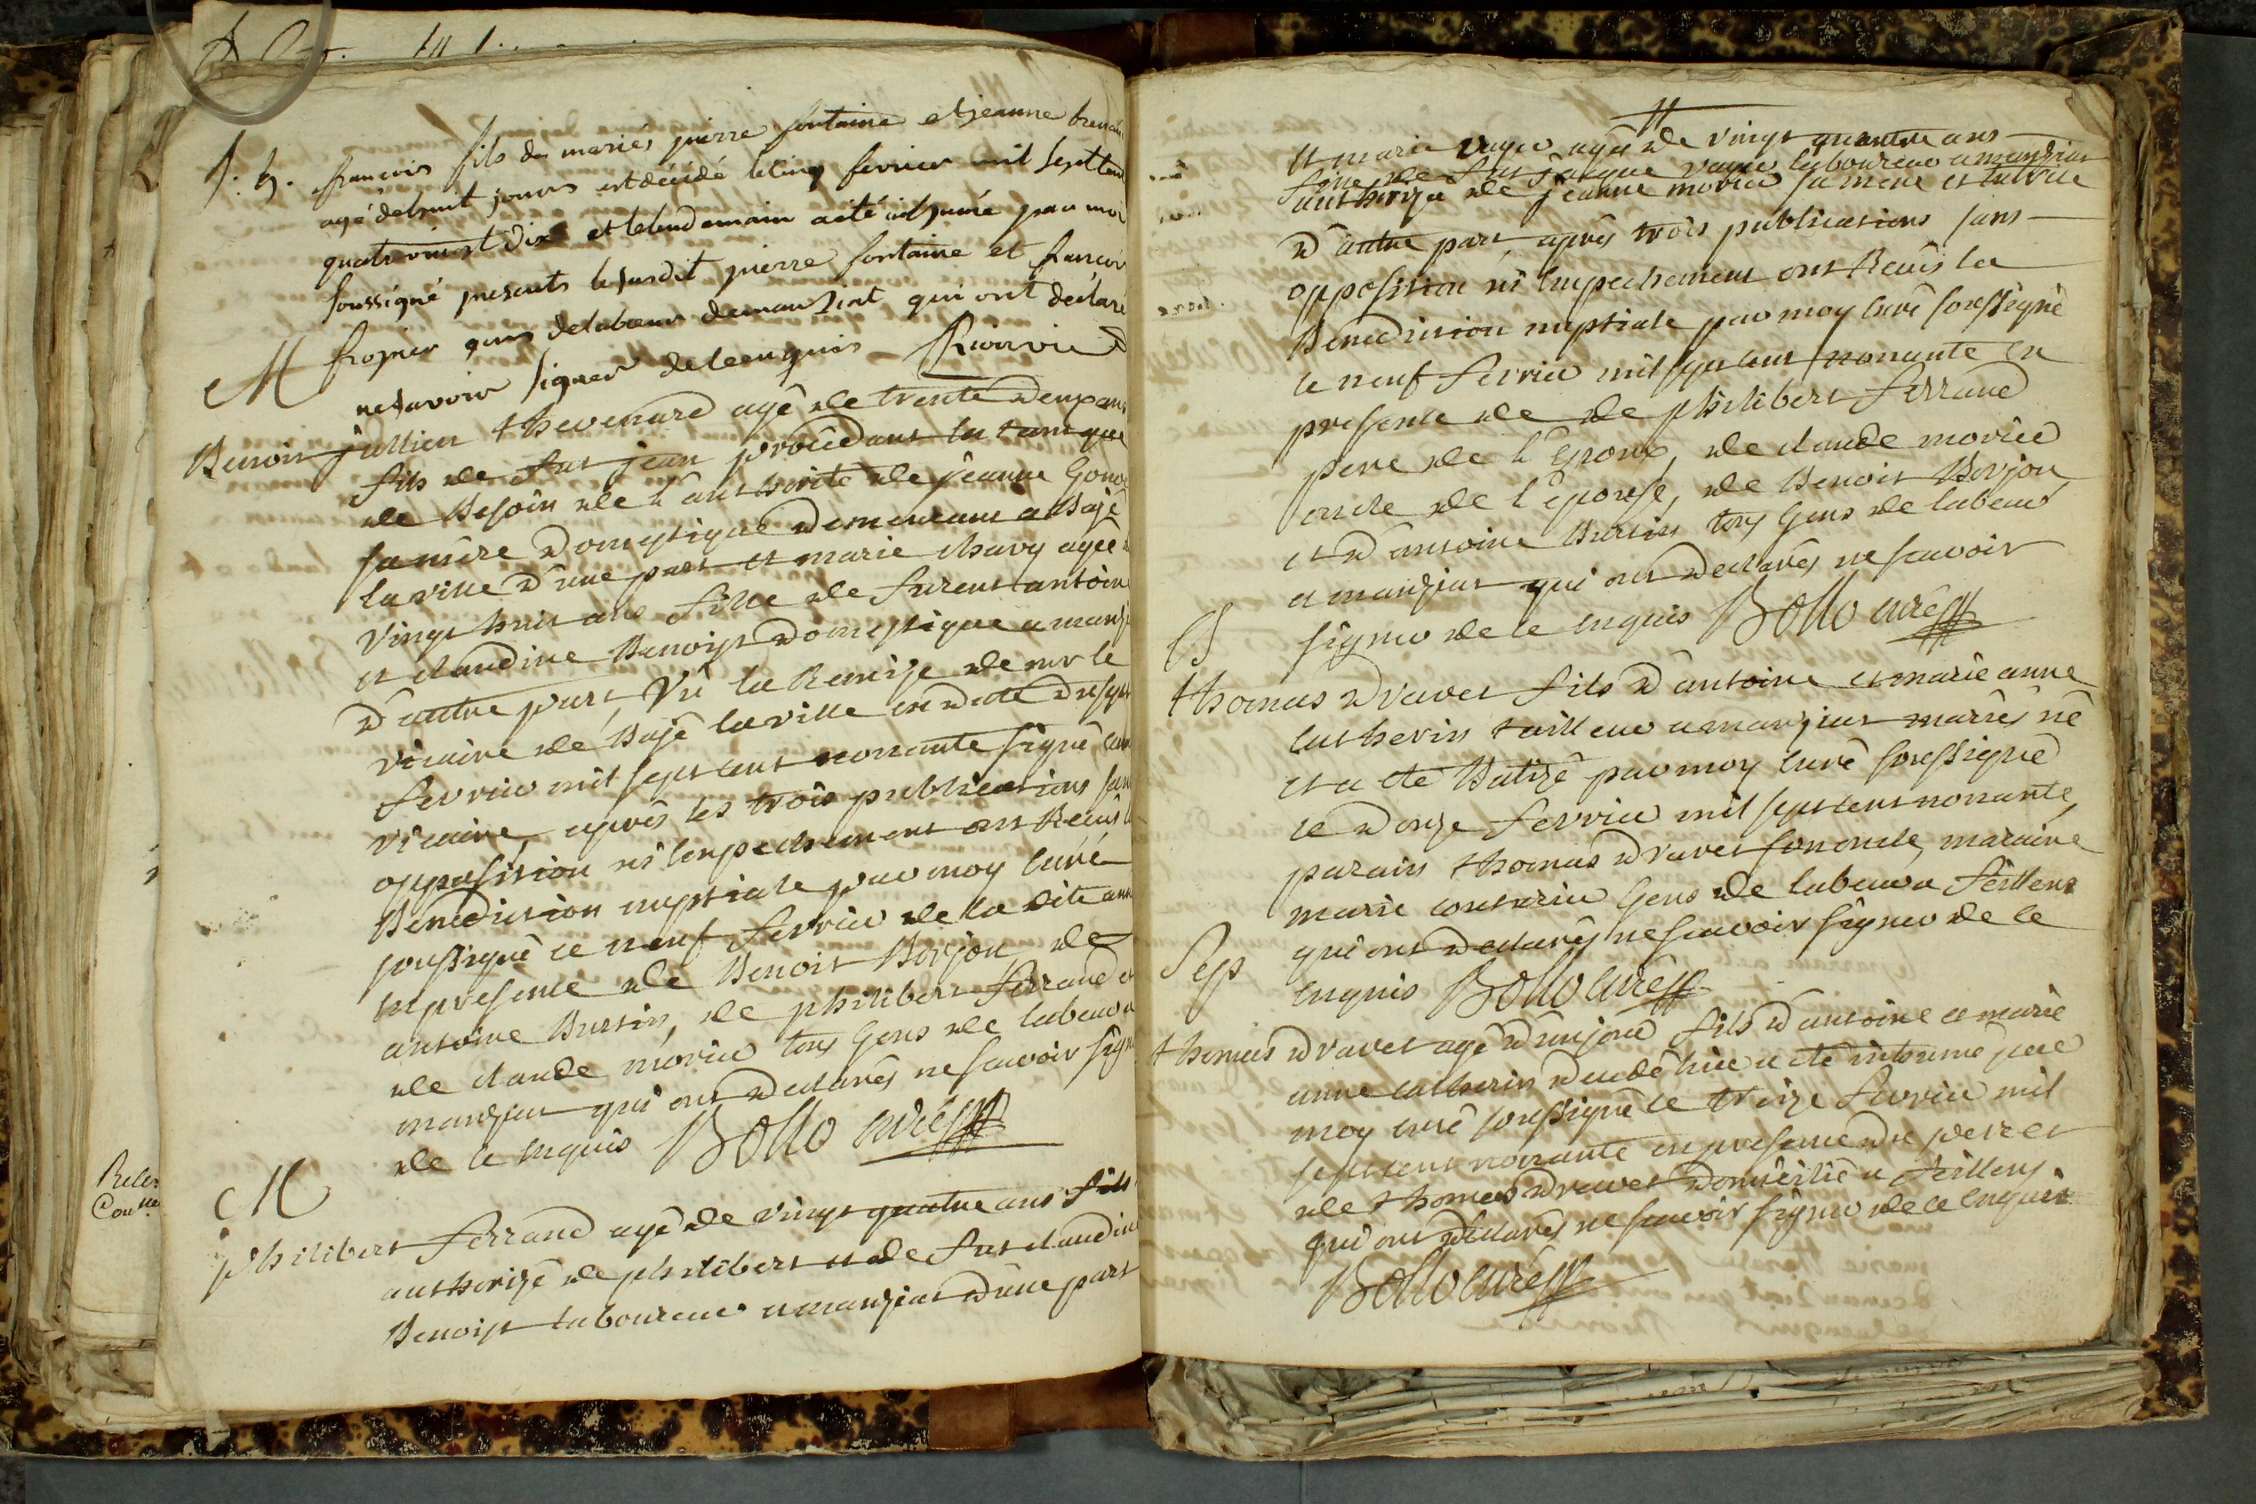 S. h. françois fils des mariés pierre fontaine et jeanne
agé de huit jours est décédé le cinq fevrier mil sept cent
quatrevingt dix et le lendemain a été inhumé par moi
soussigné presents le susdit pierre fontaine et francois
frognier gens de labeur demanziat qui ont déclaré
ne savoir signer de ce enquis
M
Benoit jullien thevenard agé de trente deux ans
fils de fut jean procédant en tant que
de Besoin de l'authorité de jeanne
sa mère domestique demeurant a Bagé
la ville d'une part et marie chavy agée de
vingt huit ans fille de furent antoine
et claudine Benoist domestique a
d'autre part, Vû la Remise de mr le
vicaire de Bagé la ville en date du sept
fevrier mil sept cent nonante signé
vicaire, après les trois publications sans
opposition ni Empechement ont Recûs la
Benediction nuptiale par moy curé
soussigné ce neuf fevrier de la dite année
en presence de Benoit Borjon, de
antoine Burtin, de philibert ferrand et
de claude morier tous gens de labeur a
manziat qui ont declarés ne scavoir signer
de ce Enquis Bollo curé
M
philibert ferrand agé de vingt quatre ans fils
authorizé de philibert et de fut claudine
Benoist laboureur a manziat d'une part
et marie vayer agée de vingt quatre ans
fille de fut jaque vayer laboureur a manziat
authorizée de jeanne morier sa mere et tutrice
d'autre part après trois publications sans
opposition ni Empechement ont Recûs la
Benediction nuptiale par moy curé soussigné
ce neuf fevrier mil sept cent nonante en
presence de de philibert ferrand
pere de l'Epoux, de claude morier
oncle de l'épouse, de Benoit Borjon
et d'antoine Burtin tous gens de labeur
a manziat qui ont declarés ne scavoir
signer de ce enquis Bollo curé
B
thomas dravet fils d'antoine et marie anne
catherin tailleur a manziat mariés né
et a eté Batizé par moy curé soussigné
ce douze fevrier mil sept cent nonante,
parain thomas dravet son oncle, maraine
marie couturier gens de labeur a feillens
qui ont declarés ne scavoir signer de ce
enquis Bollo curé
Sep
thomas dravet agé d'un jour fils d'antoine et marie
anne catherin decedé hier a eté inhumé par
moy curé soussigné ce treize fevrier mil
sept cent nonante en presence du pere et
de thomas dravet domicilié a feillens
qui ont declarés ne scavoir signer de ce enquis
Bollo curé